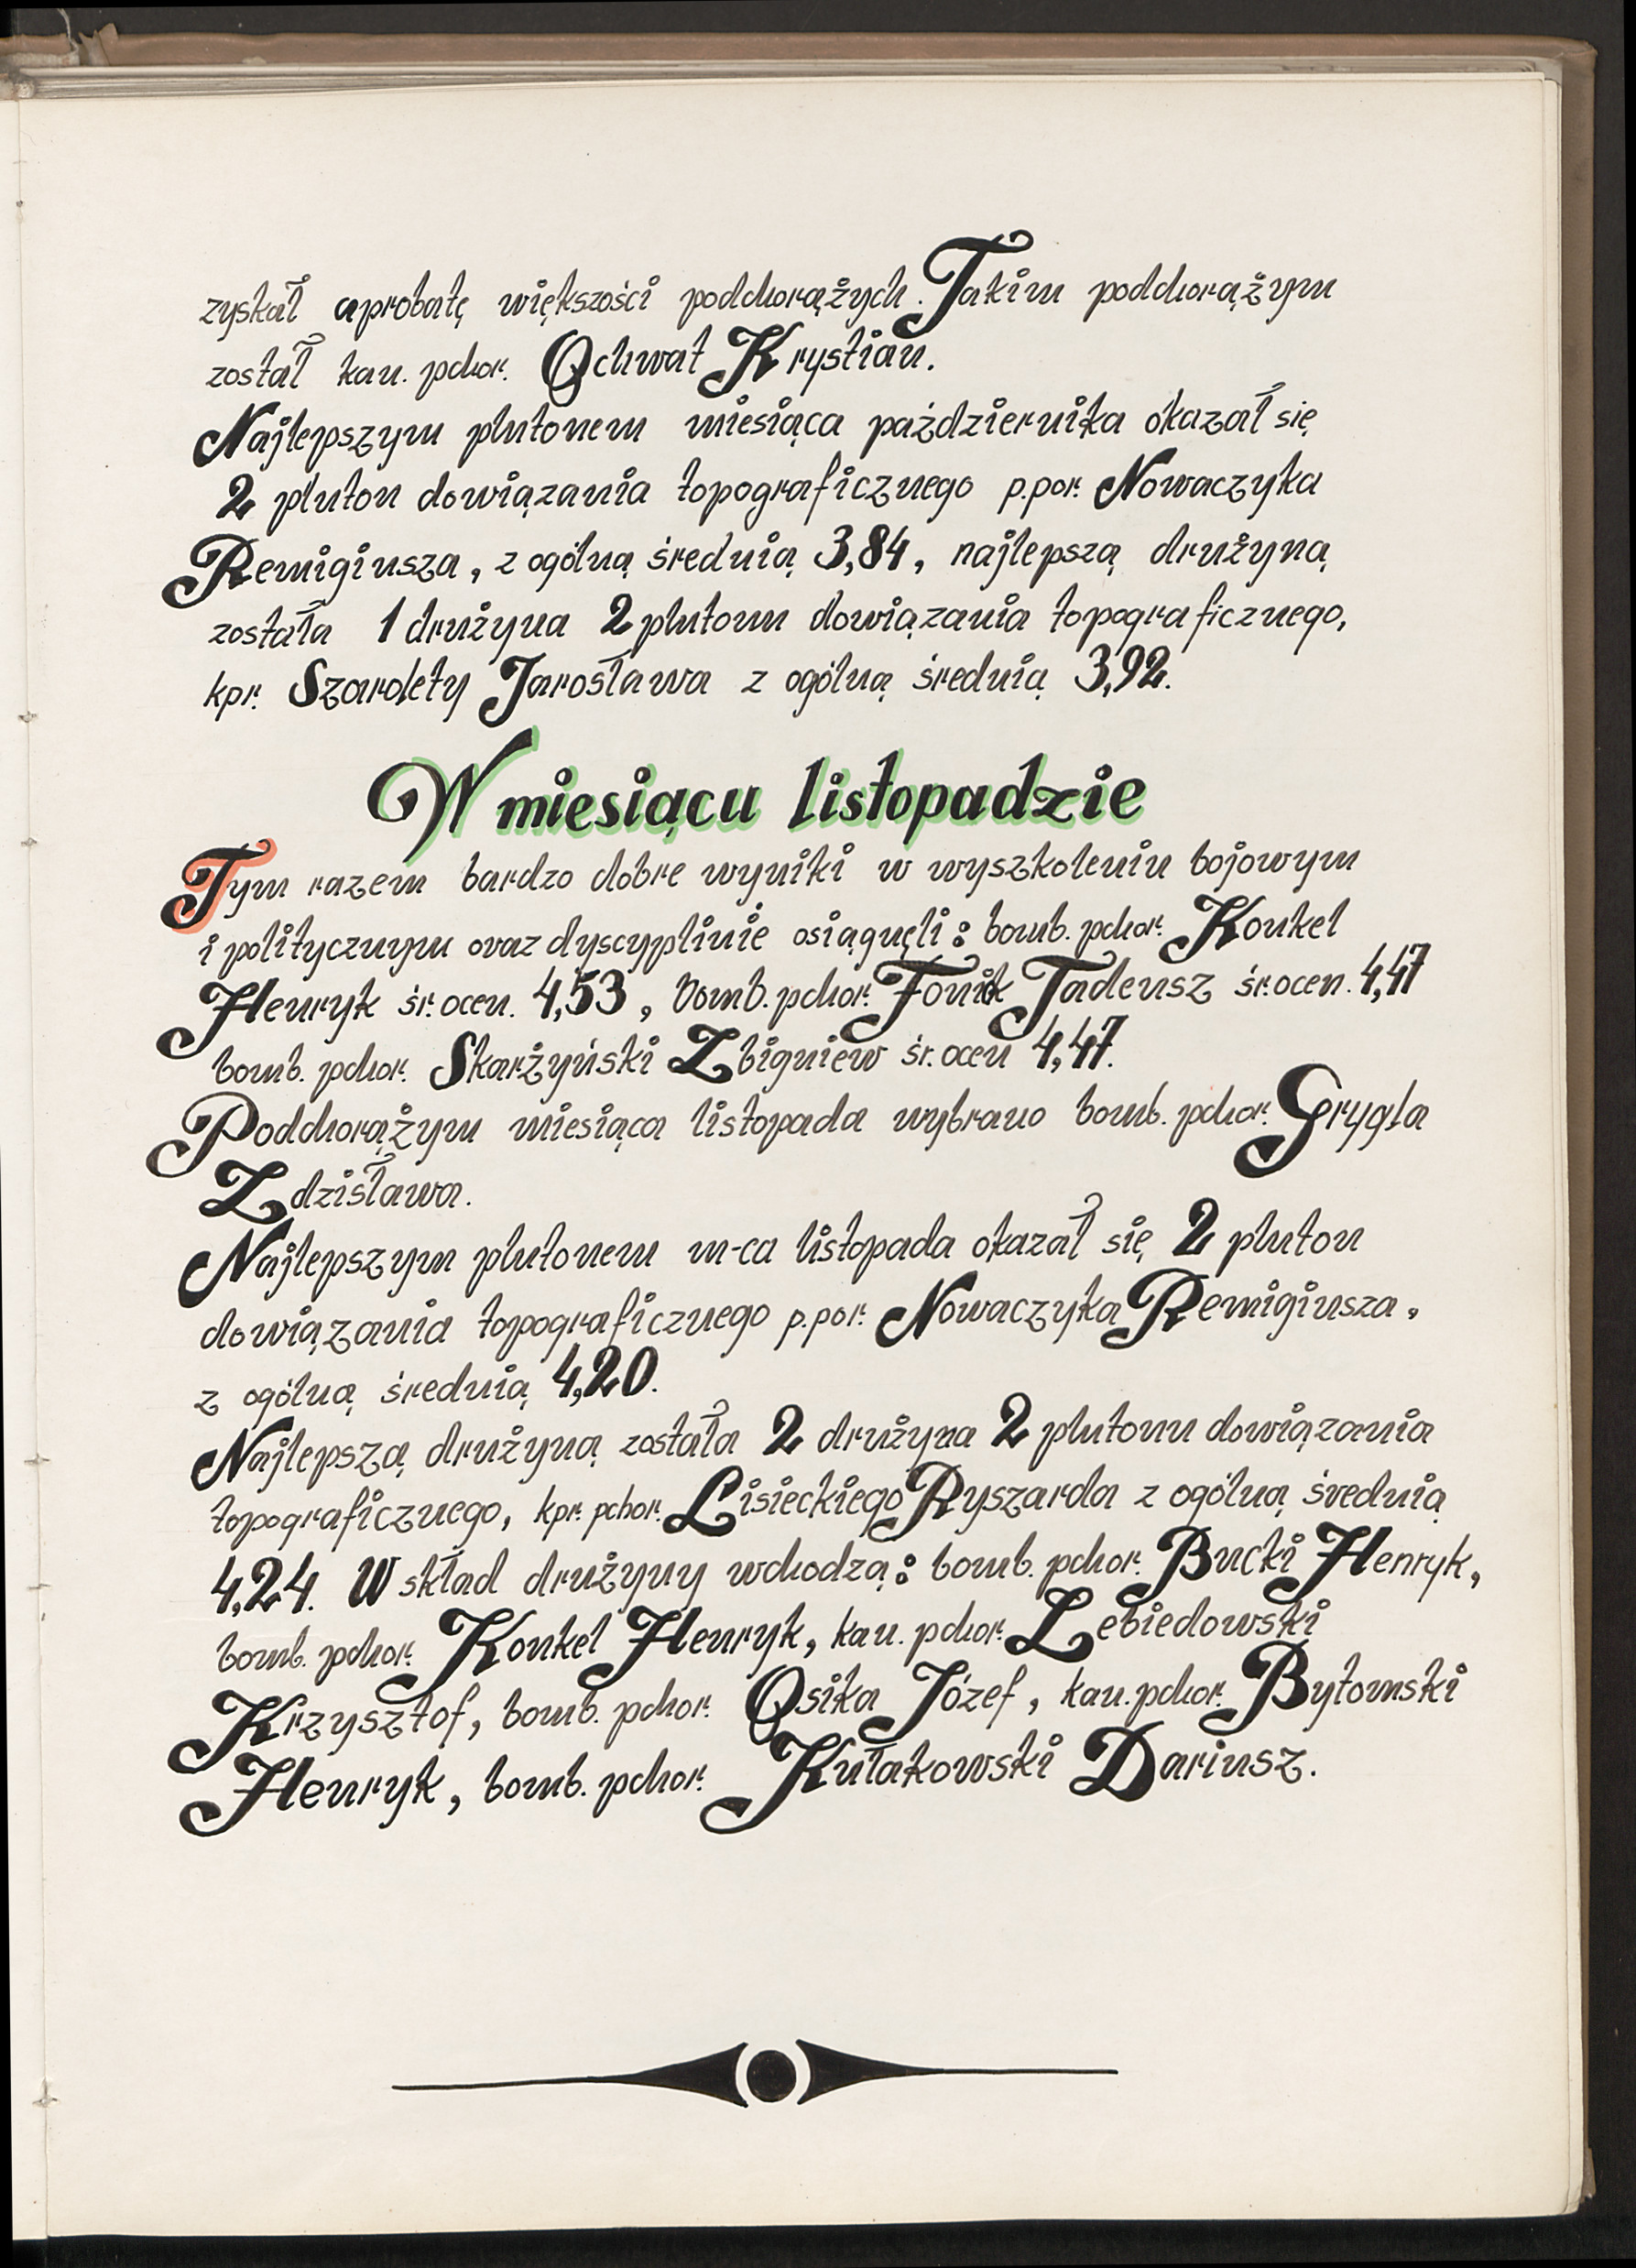 zyskał aprobatę większości podchorążych. Takim podchorążym
został kan. pchor. Ochwat Krystian.
Najlepszym plutonem miesiąca października okazał się
2 pluton dowiązania topograficznego p.por. Nowaczyka
Remigiusza, z ogólną średnią 3,84, najlepszą drużyną
została 1 drużyna 2 plutonu dowiązania topograficznego,
kpr. Szardety Jarosława z ogólną średnią 3,92.
W miesiącu listopadzie
Tym razem bardzo dobre wyniki w wyszkoleniu bojowym
i politycznym oraz dyscyplinie osiągnęli: bomb. pchor. Konkel
Henryk śr. ocen. 4,53, bomb. pchor. Fonik Tadeusz śr. ocen. 4,47
bomb. pchor. Skarżyński Zbigniew śr. ocen 4,47.
Podchorążym miesiąca listopada wybrano bomb. pchor. Grygla
Zdzisława.
Najlepszym plutonem m-ca listopada okazał się 2 pluton
dowiązania topograficznego p.por. Nowaczyka Remigiusza,
z ogólną średnią 4,20.
Najlepszą drużyną została 2 drużyna 2 plutonu dowiązania
topograficznego, kpr. pchor. Lisieckiego Ryszarda z ogólną średnią
4,24. W skład drużyny wchodzą: bomb. pchor. Bucki Henryk,
bomb. pchor. Konkel Henryk, kan. pchor. Lebiedowski
Krzysztof, bomb. pchor. Osika Józef, kan. pchor. Bytomski
Henryk, bomb. pchor. Kułakowski Dariusz.